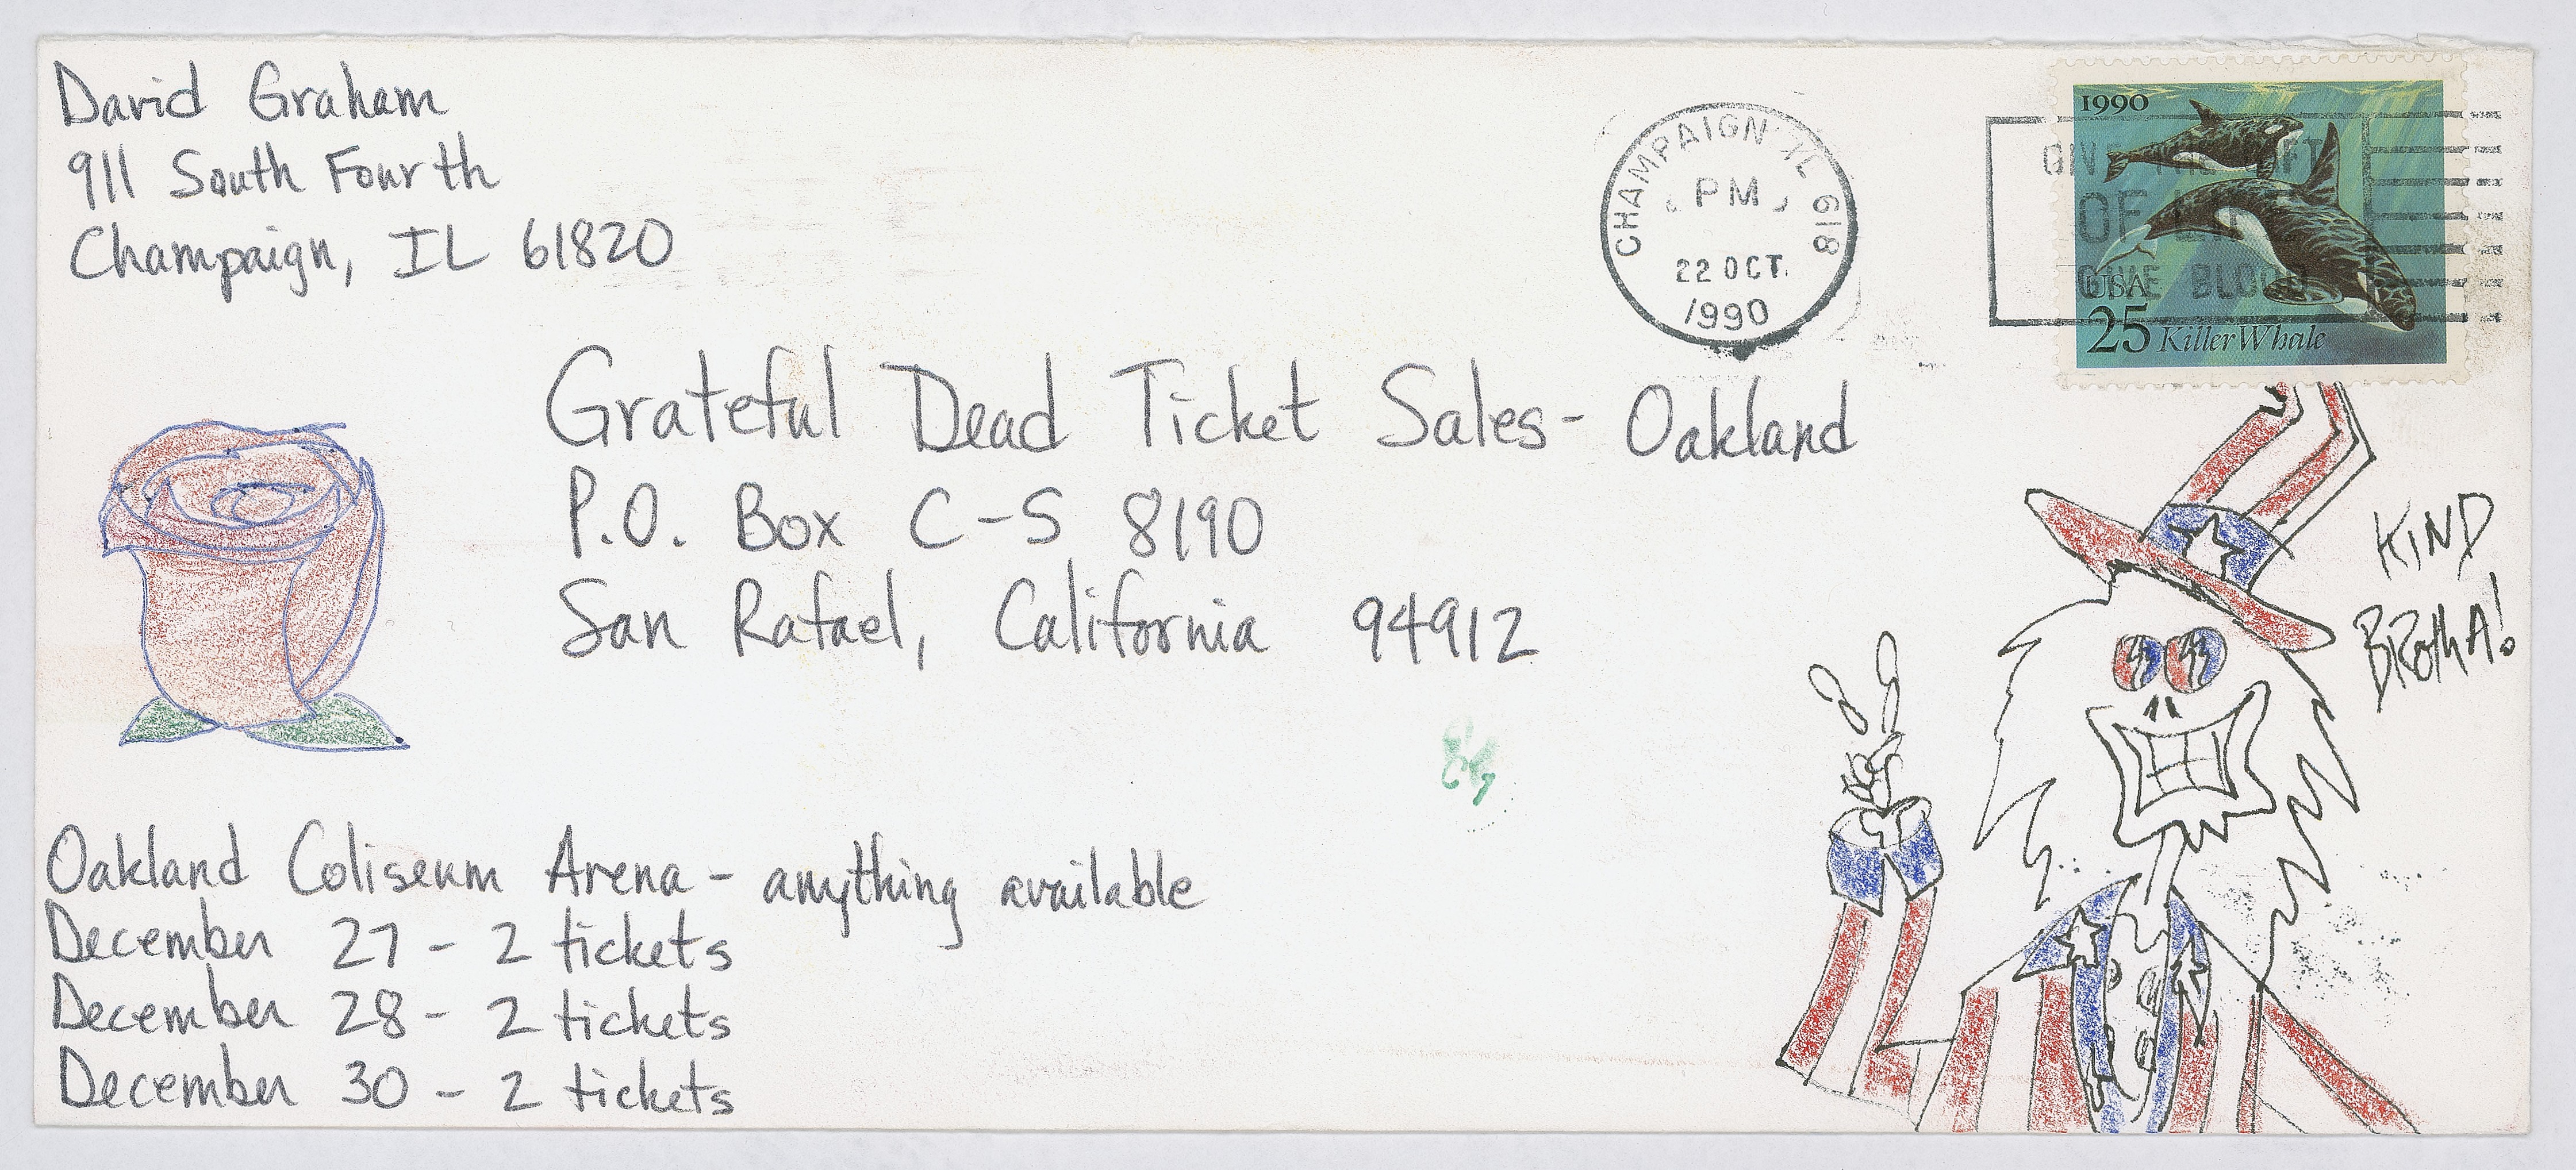 David Graham
911 South Fourth
Champaign, IL 61820
CHAMPAIGN IL 618
PM
22 OCT
1990
GIVE THE GIFT
OF LIFE
GIVE BLOOD
1990
USA
25 Killer Whale
Grateful Dead Ticket Sales- Oakland
P.O. Box C-S 8190
San Rafael, California 94912
KIND
BRothA!
Oakland Coliseum Arena - anything available
December 27 - 2 tickets
December 28 - 2 tickets
December 30 - 2 tickets